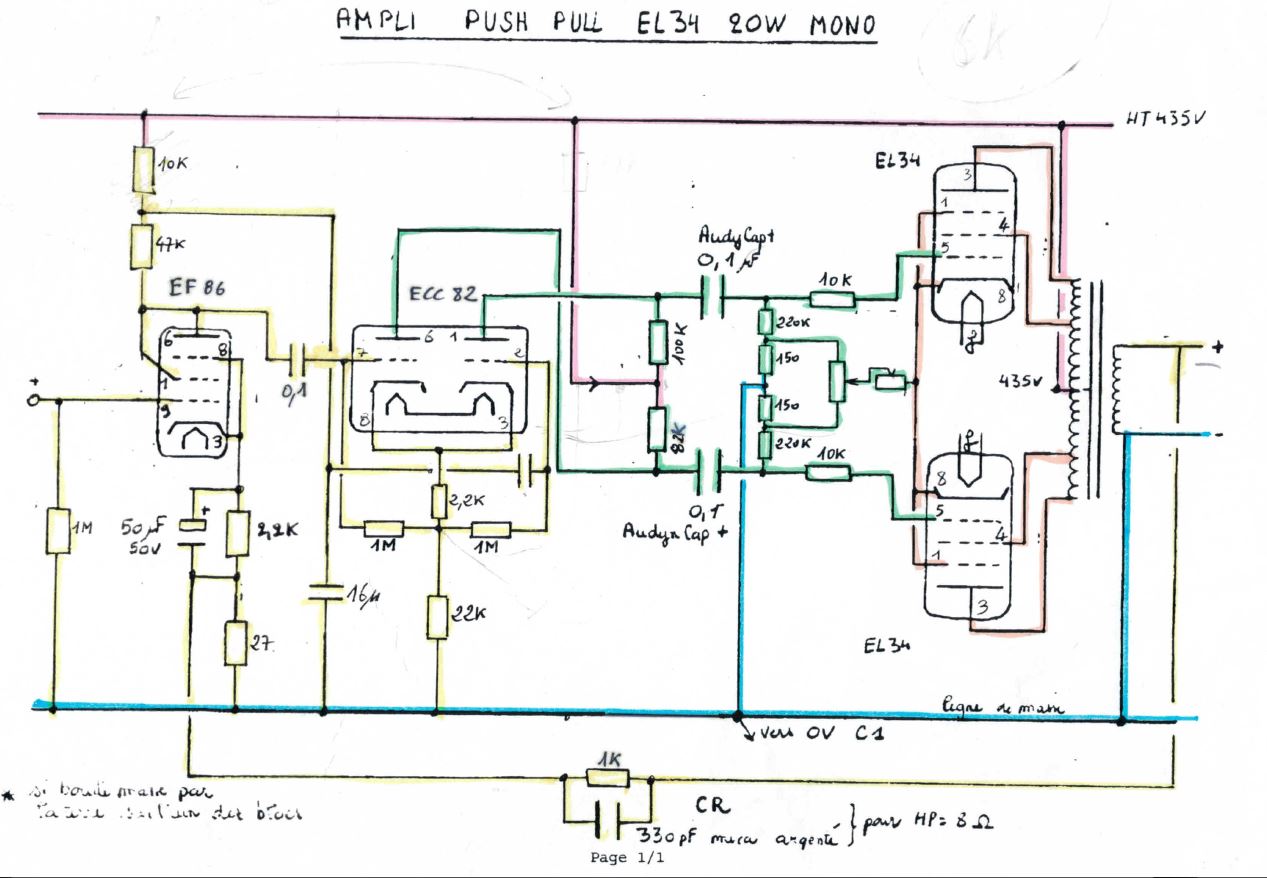 AMPLI PUSH PULL EL34 20W MONO
6K
HT 435V
10K
EL34
3
1
4
5
8
47K
AudynCap+
0,1 µF
10K
EF 86
ECC 82
6
8
1
9
3
0,1
6
1
7
2
8
3
100K
220K
150
150
220K
435V
+
-
+
82K
10K
0,1
AudynCap +
2,2K
1M
1M
8
5
4
1
3
1M
50µF
50V
2,2K
16µ
22K
27
EL34
ligne de masse
vers 0V C1
* si boucle masse par
la terre sur l'un des blocs
1K
CR
330pF mica argenté } pour HP= 8 Ω
Page 1/1